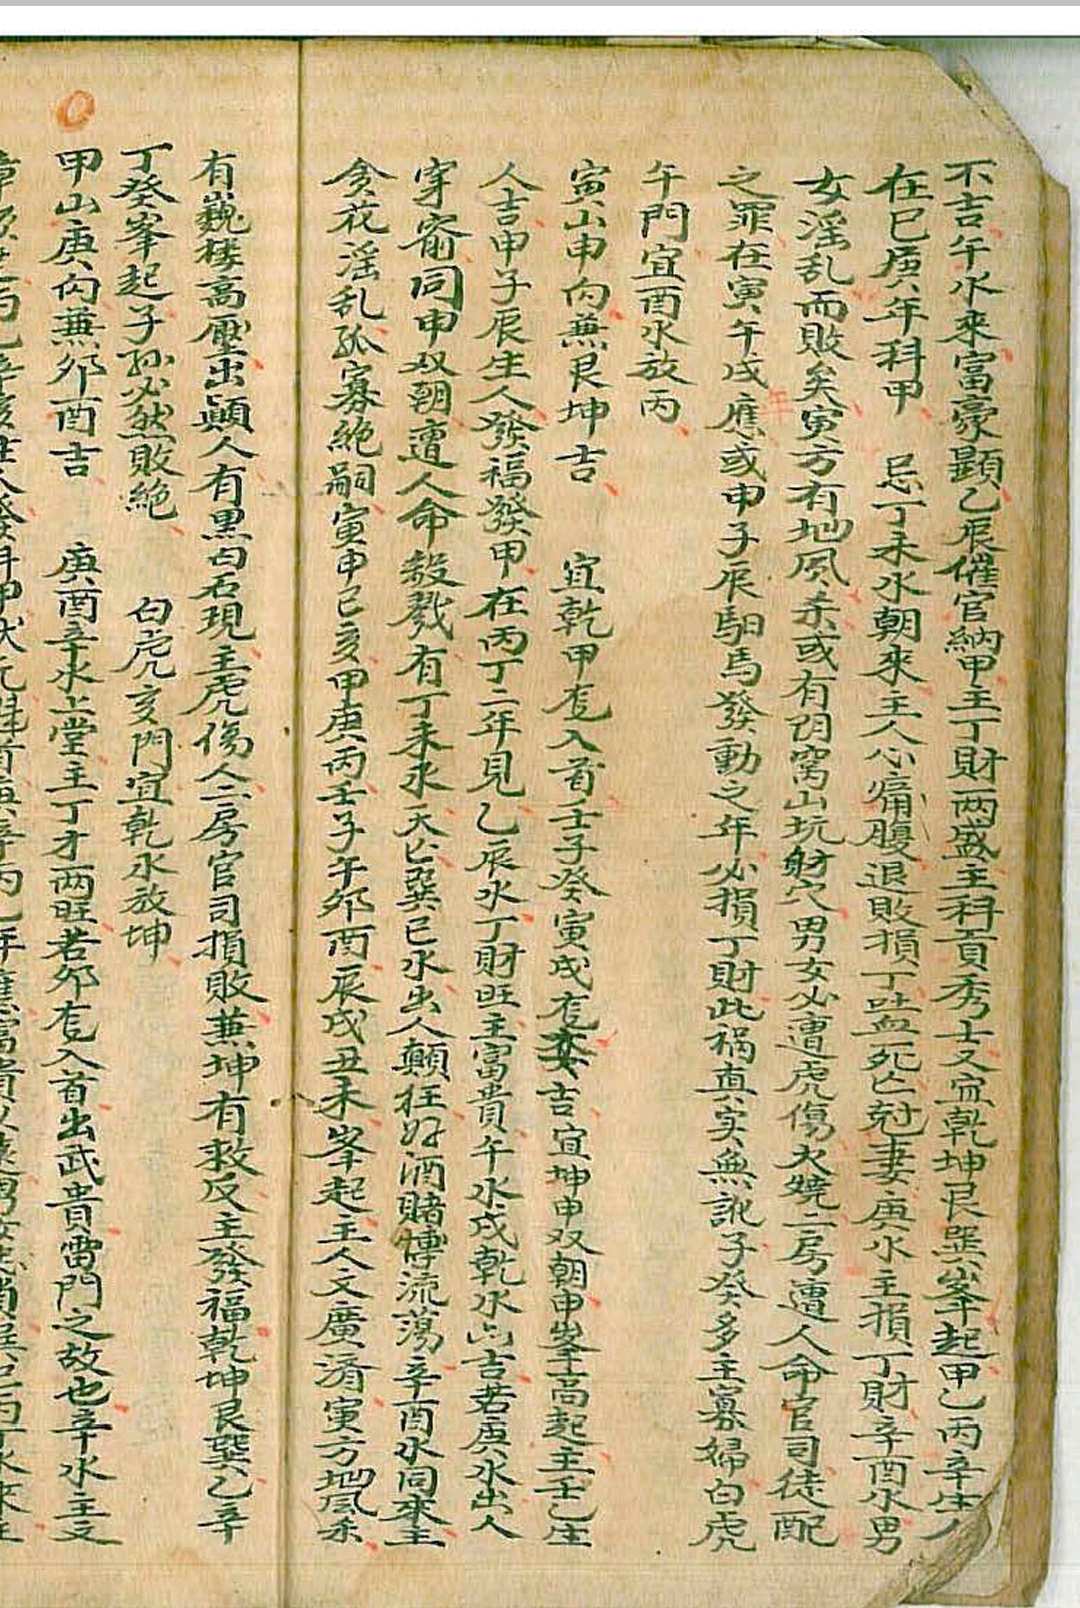 不吉午水來富豪顯乙辰催官納甲主丁財兩盛主科貢秀士又宜乾坤艮巽峯起甲乙丙辛生人
在巳庚年科甲　忌丁未水朝來主人心痛腹退敗損丁吐血死亡尅妻庚水主損丁財辛酉水男
女淫乱而敗矣寅方有地风杀或有阴窝山坑射穴男女必遭虎傷火燒二房遭人命官司徒配
之罪在寅午戌年應或申子辰馹馬發動之年必損丁財此禍真实無訛子癸多主寡婦白虎
午門宜酉水放丙
寅山申向兼艮坤吉　宜乾甲入首壬子癸寅戌吉宜坤申双朝申峯高起主壬乙生
人吉申子辰生人發福發甲在丙丁二年見乙辰水丁財旺主富貴午水戌乾水凶吉若庚水出人
穿窬同申双朝遭人命殺戮有丁未水天亡巽巳水出人顛狂好酒賭博流荡辛酉水同來主
贪花淫乱孤寡絶嗣寅申巳亥甲庚丙壬子午夘酉辰戌丑未峯起主人文廣濟寅方地风杀
有巍楼高壓出顛人有黑白石現主虎傷人二房官司損敗兼坤有救反主發福乾坤艮巽乙辛
丁癸峯起子孙必然敗絶　白虎亥門宜乾水放坤
甲山庚向兼夘酉吉　庚酉辛水上堂主丁才两旺若夘入首出武貴雷門之故也辛水主文